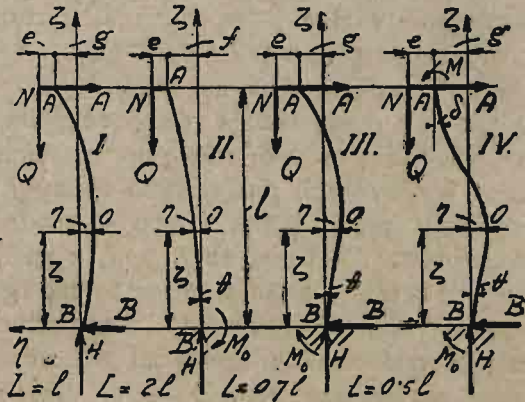 ζ ζ ζ ζ
e g e f e g e g
M
N A A N A N A A N A A
δ
Q I. Q II. Q III. Q IV.
l
η O η O η O η O
ζ ζ ζ ζ
ϑ ϑ ϑ
B B B B B B B
η H M₀ H M₀ H M₀ H
L = l L = 2l L = 0.7l L = 0.5l